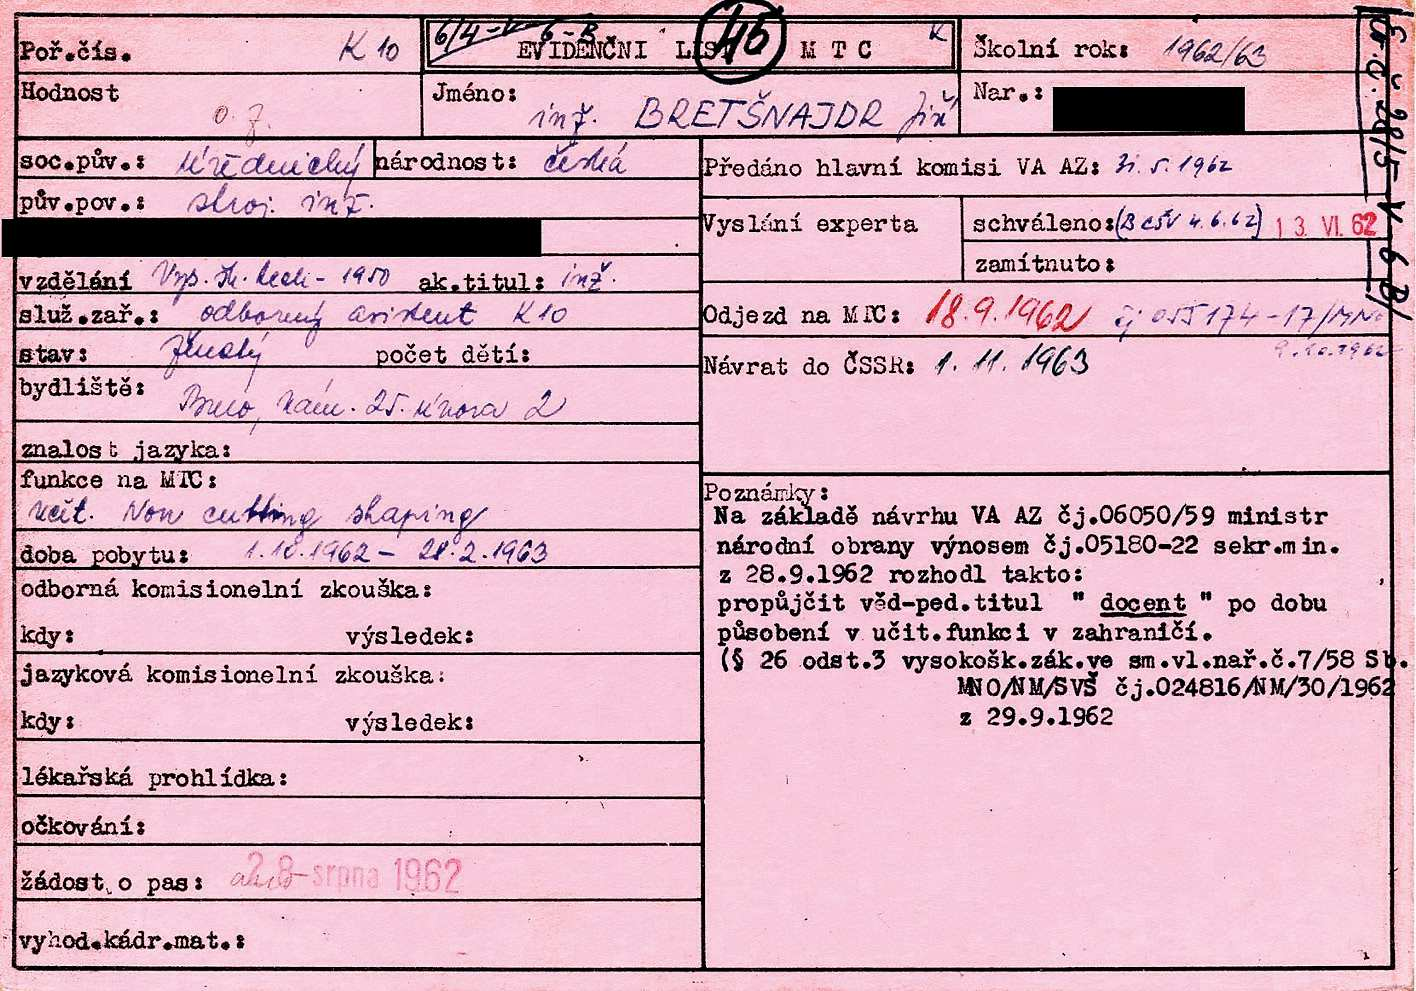 Poř.čís. K 10
6/4-V-6-B
EVIDENČNI LIST MTC K
45
Školní rok: 1962/63
Hodnost o. z.
Jméno: inž. BRETŠNAJDR Jiří
Nar.:
soc.pův.: úřednický národnost: česká
pův.pov.: stroj. inž.
vzdělání Vys. šk. tech - 1950 ak.titul: inž.
služ.zař.: odborný asistent K10
stav: ženatý počet dětí:
bydliště: Brno, nám. 25. února 2
znalost jazyka:
funkce na MTC:
učit. Non cutting shaping
doba pobytu: 1.10.1962 - 28.2.1963
odborná komisionelní zkouška:
kdy: výsledek:
jazyková komisionelní zkouška:
kdy: výsledek:
lékařská prohlídka:
očkování:
žádost o pas: 28 srpna 1962
vyhod.kádr.mat.:
Předáno hlavní komisi VA AZ: 31.5.1962
Vyslání experta schváleno: (BCSV 4.6.62) 13. VI. 62
zamítnuto:
Odjezd na MTC: 18.9.1962 čj 055174-17/MNO
9.10.1962
Návrat do ČSSR: 1.11.1963
Poznámky:
Na základě návrhu VA AZ čj.06050/59 ministr
národní obrany výnosem čj.05180-22 sekr.min.
z 28.9.1962 rozhodl takto:
propůjčit věd-ped.titul " docent " po dobu
působení v učit.funkci v zahraničí.
(§ 26 odst.3 vysokošk.zák.ve sm.vl.nař.č.7/58 Sb.
MNO/NM/SVŠ čj.024816/NM/30/1962
z 29.9.1962
28/5-V-6B